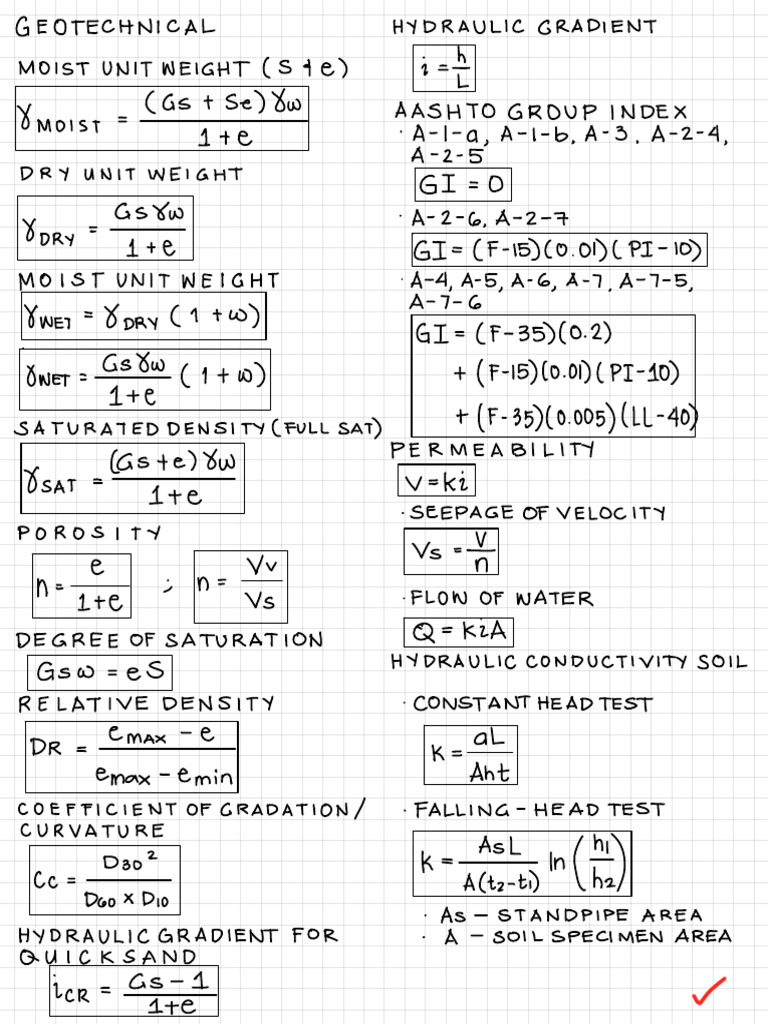 GEOTECHNICAL
MOIST UNIT WEIGHT (S & e)
γMOIST = (Gs + Se)γw / 1+e
DRY UNIT WEIGHT
γDRY = Gsγw / 1+e
MOIST UNIT WEIGHT
γWET = γDRY (1 + ω)
γWET = Gsγw / 1+e (1+ω)
SATURATED DENSITY (FULL SAT)
γSAT = (Gs+e)γw / 1+e
POROSITY
n = e / 1+e ; n = Vv / Vs
DEGREE OF SATURATION
Gsω = eS
RELATIVE DENSITY
DR = eMAX - e / emax - emin
COEFFICIENT OF GRADATION/
CURVATURE
Cc = D30² / D60 x D10
HYDRAULIC GRADIENT FOR
QUICKSAND
iCR = Gs - 1 / 1+e
HYDRAULIC GRADIENT
i = h / L
AASHTO GROUP INDEX
· A-1-a, A-1-b, A-3, A-2-4,
A-2-5
GI = 0
· A-2-6, A-2-7
GI = (F-15)(0.01)(PI-10)
· A-4, A-5, A-6, A-7, A-7-5,
A-7-6
GI = (F-35)(0.2)
+ (F-15)(0.01)(PI-10)
+ (F-35)(0.005)(LL-40)
PERMEABILITY
V = ki
· SEEPAGE OF VELOCITY
Vs = V / n
· FLOW OF WATER
Q = kiA
HYDRAULIC CONDUCTIVITY SOIL
· CONSTANT HEAD TEST
K = aL / Aht
· FALLING-HEAD TEST
k = AsL / A(t2-t1) ln (h1 / h2)
· As - STANDPIPE AREA
· A - SOIL SPECIMEN AREA